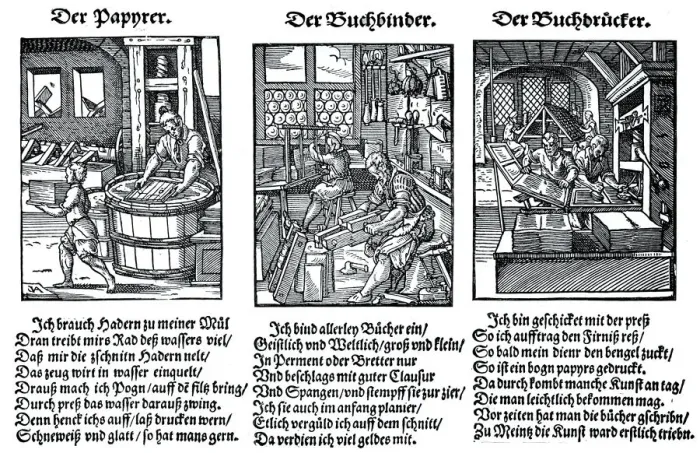 Der Papyrer.
Ich brauch Hadern zu meiner Mül
Dran treibt mirs Rad deß wassers viel/
Daß mir die zschnitn Hadern nelt/
Das zeug wirt in wasser einquelt/
Drauß mach ich Pogn/auff dē filtz bring/
Durch preß das wasser darauß zwing.
Denn henck ichs auff/laß drucken wern/
Schneweiß vnd glatt/so hat mans gern.
Der Buchbinder.
Ich bind allerley Bücher ein/
Geistlich vnd Weltlich/groß vnd klein/
In Perment oder Bretter nur
Vnd beschlags mit guter Clausur
Vnd Spangen/vnd stempff sie zur zier/
Ich sie auch im anfang planier/
Etlich vergüld ich auff dem schnitt/
Da verdien ich viel geldes mit.
Der Buchdrücker.
Ich bin geschicket mit der preß
So ich aufftrag den Firniß reß/
So bald mein dienr den bengel zuckt/
So ist ein bogn papyrs gedruckt.
Da durch kombt manche Kunst an tag/
Die man leichtlich bekommen mag.
Vor zeiten hat man die bücher gschribn/
Zu Meintz die Kunst ward erstlich triebn.